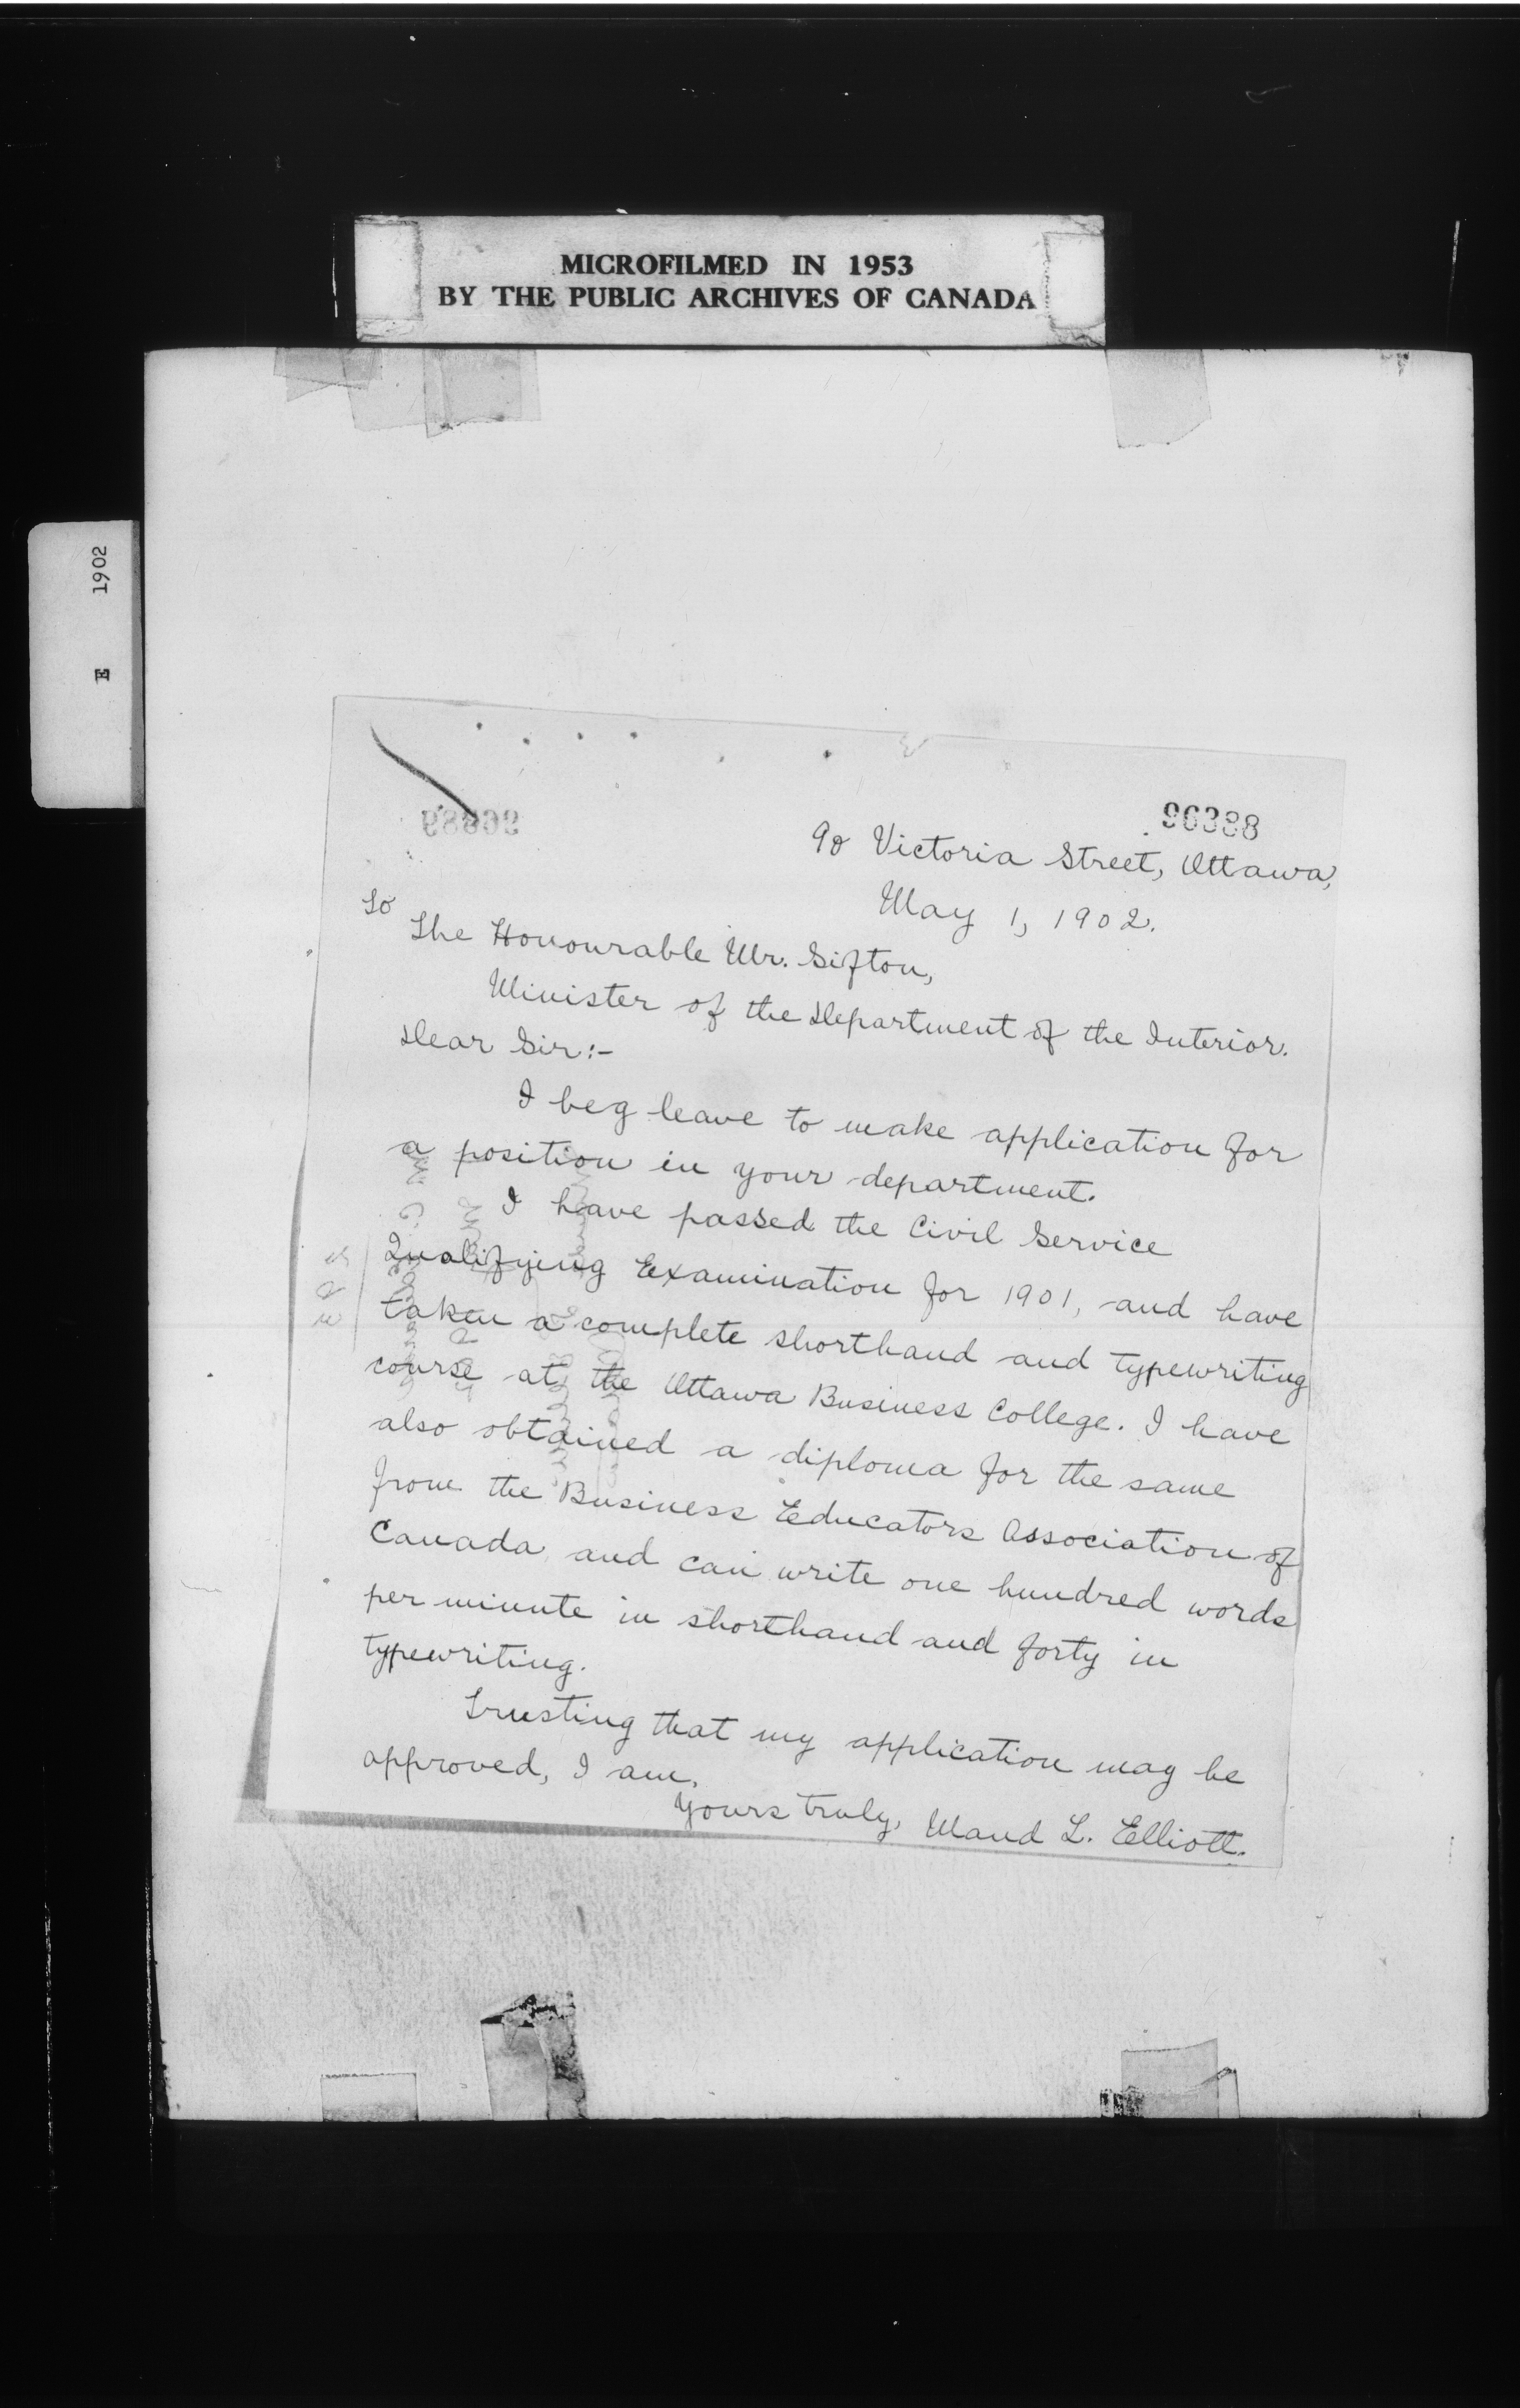 MICROFILMED IN 1953
BY THE PUBLIC ARCHIVES OF CANADA
E 1902
96388
90 Victoria Street, Ottawa,
May 1, 1902.
To
The Honourable Mr. Sifton,
Minister of the Department of the Interior.
Dear Sir:-
I beg leave to make application for
a position in your department.
I have passed the Civil Service
Qualifying Examination for 1901, and have
taken a complete shorthand and typewriting
course at the Ottawa Business College. I have
also obtained a diploma for the same
from the Business Educators Association of
Canada and can write one hundred words
per minute in shorthand and forty in
typewriting.
Trusting that my application may be
approved, I am,
Yours truly, Maud L. Elliott.